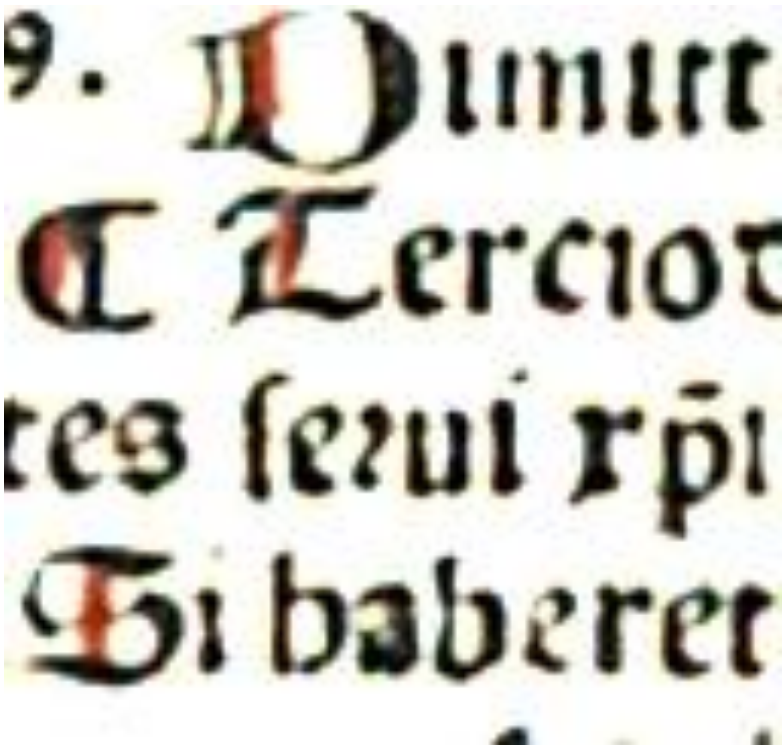 9. Dimitt
¶ Tercio
tes ſerui xp̄i
Si haberet